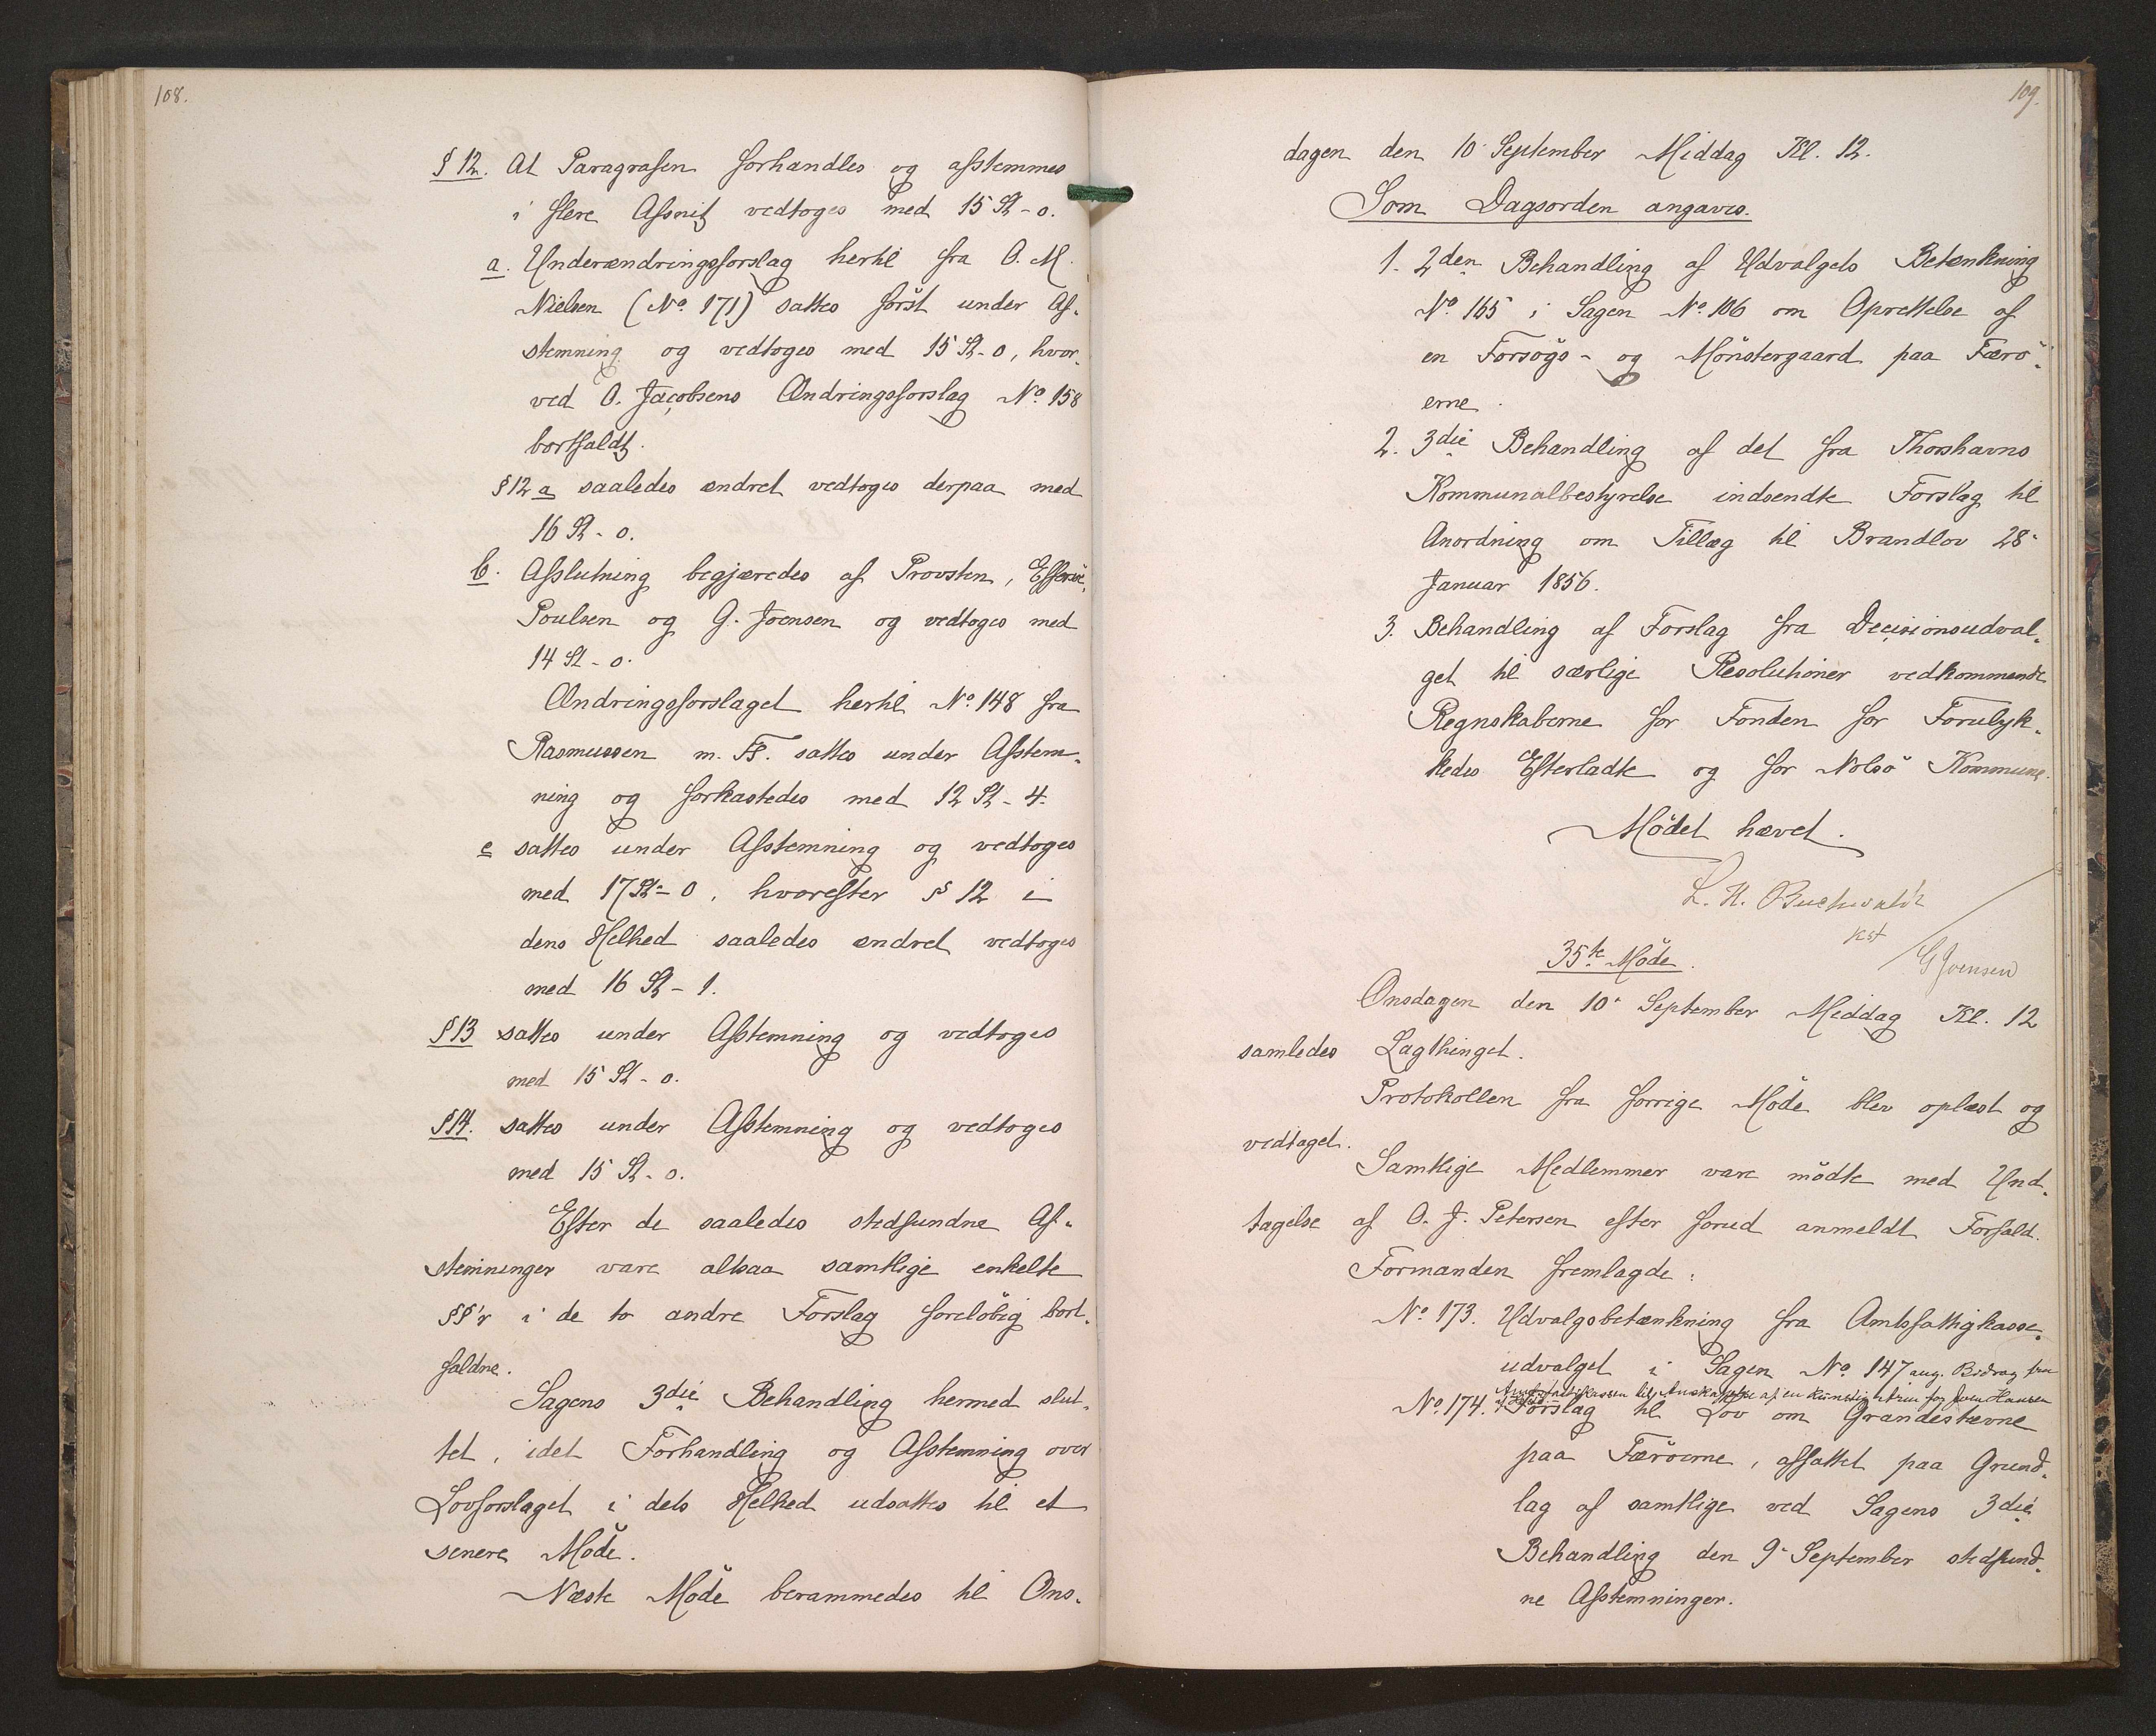 108.
§ 12. At Paragrafen forhandles og afstemmes
i flere Afsnit vedtoges med 15 St - 0.
a. Underændringsforslag hertil fra O. M.
Nielsen (No. 171) sattes först under Af-
stemning og vedtoges med 15 St - 0, hvor-
ved O. Jacobsens Ændringsforslag No. 158
bortfaldt.
§ 12 a saaledes ændret vedtoges derpaa med
16 St - 0.
b. Afslutning begjæredes af Provsten, Effersöe,
Poulsen og G. Joensen og vedtoges med
14 St - 0.
Ændringsforslaget hertil No. 148 fra
Rasmussen m. Fl. sattes under Afstem-
ning og forkastedes med 12 St - 4.
c sattes under Afstemning og vedtoges
med 17 St - 0, hvorefter § 12 i
dens Helhed saaledes ændret vedtoges
med 16 St - 1.
§ 13 sattes under Afstemning og vedtoges
med 15 St - 0.
§ 14. sattes under Afstemning og vedtoges
med 15 St - 0.
Efter de saaledes stedfundne Af-
stemninger vare altsaa samtlige enkelte
§§'r i de to andre Forslag foreløbig bort-
faldne.
Sagens 3die Behandling hermed slut-
tet, idet Forhandling og Afstemning over
Lovforslaget i dets Helhed udsattes til et
senere Möde.
Næste Möde berammedes til Ons-
109.
dagen den 10' September Middag Kl. 12.
Som Dagsorden angaves.
1. 2den Behandling af Udvalgets Betænkning
No. 165 i Sagen No. 106 om Oprettelse af
en Forsögs- og Mönstergaard paa Færö-
erne.
2. 3die Behandling af det fra Thorshavns
Kommunalbestyrelse indsendte Forslag til
Anordning om Tillæg til Brandlov 28'
Januar 1856.
3. Behandling af Forslag fra Decisionsudval-
get til særlige Resolutioner vedkommende
Regnskaberne for Fonden for Forulyk-
kedes Efterladte og for Nolsö Kommune.
Mödet hævet.
L. H. Buchwaldt
kst
G Joensen
35te Möde.
Onsdagen den 10' September Middag Kl. 12
samledes Lagthinget.
Protokollen fra forrige Möde blev oplæst og
vedtaget.
Samtlige Medlemmer vare mödte med Und-
tagelse af O. J. Petersen efter forud anmeldt Forfald.
Formanden fremlagde:
No. 173. Udvalgsbetænkning fra Amtsfattigkasse-
udvalget i Sagen No. 147 ang. Bidrag fra
Amtsfattigkassen til Anskaffelse af en kunstig for Hansen
No. 174. Forslag til Lov om Grandestævne
paa Færöerne, affattet paa Grund-
lag af samtlige ved Sagens 3die
Behandling den 9' September stedfund-
ne Afstemninger.